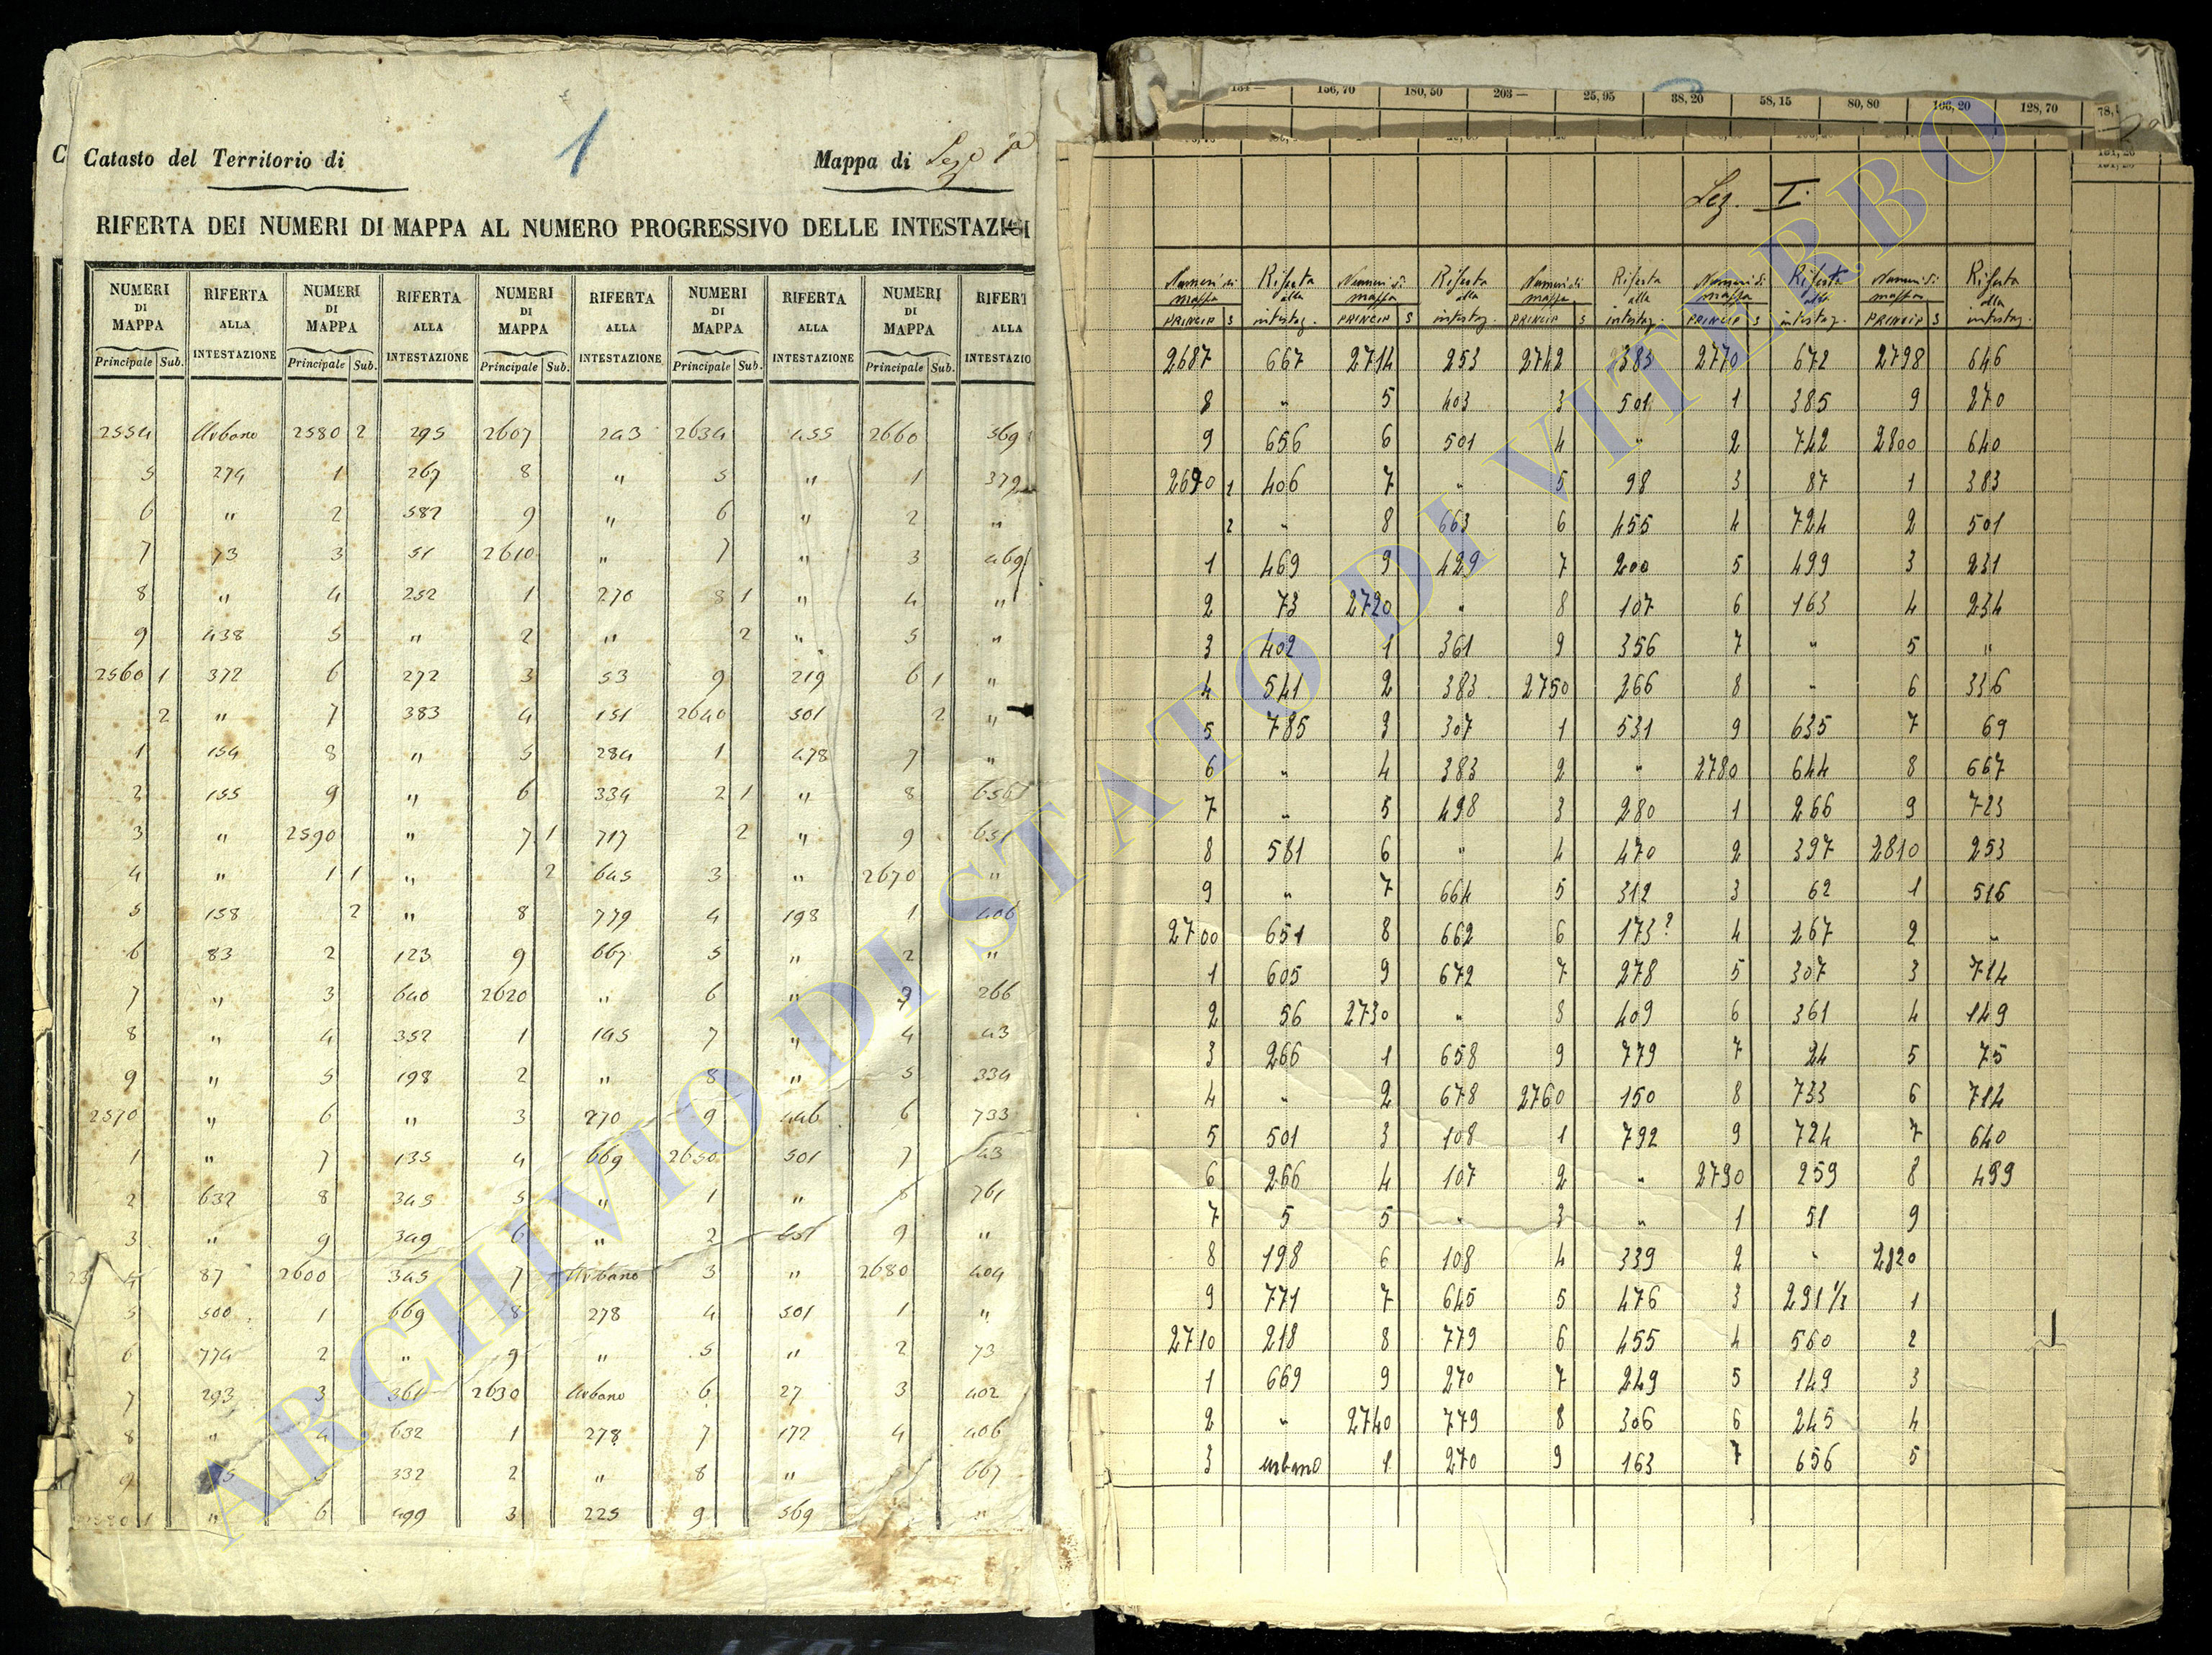 1
Catasto del Territorio di
Mappa di Sez.e 1a
RIFERTA DEI NUMERI DI MAPPA AL NUMERO PROGRESSIVO DELLE INTESTAZI
NUMERI DI MAPPA RIFERTA ALLA INTESTAZIONE NUMERI DI MAPPA RIFERTA ALLA INTESTAZIONE NUMERI DI MAPPA RIFERTA ALLA INTESTAZIONE NUMERI DI MAPPA RIFERTA ALLA INTESTAZIONE NUMERI DI MAPPA RIFERT ALLA INTESTAZIO
Principale Sub. Principale Sub. Principale Sub. Principale Sub. Principale Sub.
2554 Urbano 2580 2 295 2607 243 2634 455 2660 569
5 274 1 267 8 " 5 " 1 379
6 " 2 582 9 " 6 " 2 "
7 73 3 51 2610 " 7 " 3 469
8 " 4 252 1 270 8 1 " 4 "
9 438 5 " 2 " 2 " 5 "
2560 1 372 6 272 3 53 9 219 6 1 "
2 " 7 383 4 151 2640 501 2 "
1 154 8 " 5 284 1 478 7 "
2 155 9 " 6 334 2 1 " 8 656
3 " 2590 " 7 1 717 2 " 9 651
4 " 1 1 " 2 645 3 " 2670 "
5 158 2 " 8 779 4 198 1 406
6 83 2 123 9 667 5 " 2 "
7 " 3 640 2620 " 6 " 3 266
8 " 4 352 1 145 7 " 4 43
9 " 5 198 2 " 8 " 5 334
2570 " 6 " 3 270 9 446 6 733
1 " 7 135 4 669 2650 501 7 43
2 632 8 345 5 " 1 " 8 761
3 " 9 349 6 " 2 651 9 "
4 87 2600 345 7 Urbano 3 " 2680 404
5 500 1 669 8 278 4 501 1 "
6 774 2 " 9 " 5 " 2 73
7 293 3 361 2630 Urbano 6 27 3 402
8 " 4 632 1 278 7 172 4 406
9 5 332 2 " 8 " 5 667
2580 1 " 6 499 3 225 9 569 "
134 — 156, 70 180, 50 203 — 25, 95 38, 20 58, 15 80, 80 106, 20 128, 70
Sez. I.
Numeri di mappa Riferta alla intestaz. Numeri di mappa Riferta alla intestaz. Numeri di mappa Riferta alla intestaz. Numeri di mappa Riferta alla intestaz. Numeri di mappa Riferta alla intestaz.
PRINCIP S PRINCIP S PRINCIP S PRINCIP S PRINCIP S
2687 667 2714 253 2742 383 2770 672 2798 646
8 " 5 403 3 501 1 385 9 270
9 656 6 501 4 " 2 742 2800 640
2690 1 406 7 " 5 98 3 87 1 383
2 " 8 663 6 455 4 724 2 501
1 469 9 429 7 200 5 499 3 231
2 73 2720 " 8 107 6 163 4 234
3 402 1 361 9 356 7 " 5 "
4 541 2 383 2750 266 8 " 6 336
5 785 3 307 1 531 9 635 7 69
6 " 4 383 2 " 2780 644 8 667
7 " 5 498 3 280 1 266 9 723
8 581 6 " 4 470 2 397 2810 253
9 " 7 664 5 312 3 62 1 516
2700 651 8 662 6 173? 4 267 2 "
1 605 9 672 7 278 5 307 3 714
2 56 2730 " 8 409 6 361 4 149
3 266 1 658 9 779 7 24 5 75
4 " 2 678 2760 150 8 733 6 714
5 501 3 108 1 792 9 724 7 640
6 266 4 107 2 " 2790 259 8 499
7 5 5 " 3 " 1 51 9
8 198 6 108 4 339 2 " 2820
9 771 7 645 5 476 3 291 1/3 1
2710 218 8 779 6 455 4 560 2
1 669 9 270 7 249 5 149 3
2 " 2740 779 8 306 6 245 4
3 urbano 1 270 9 163 7 656 5
ARCHIVIO DI STATO DI VITERBO